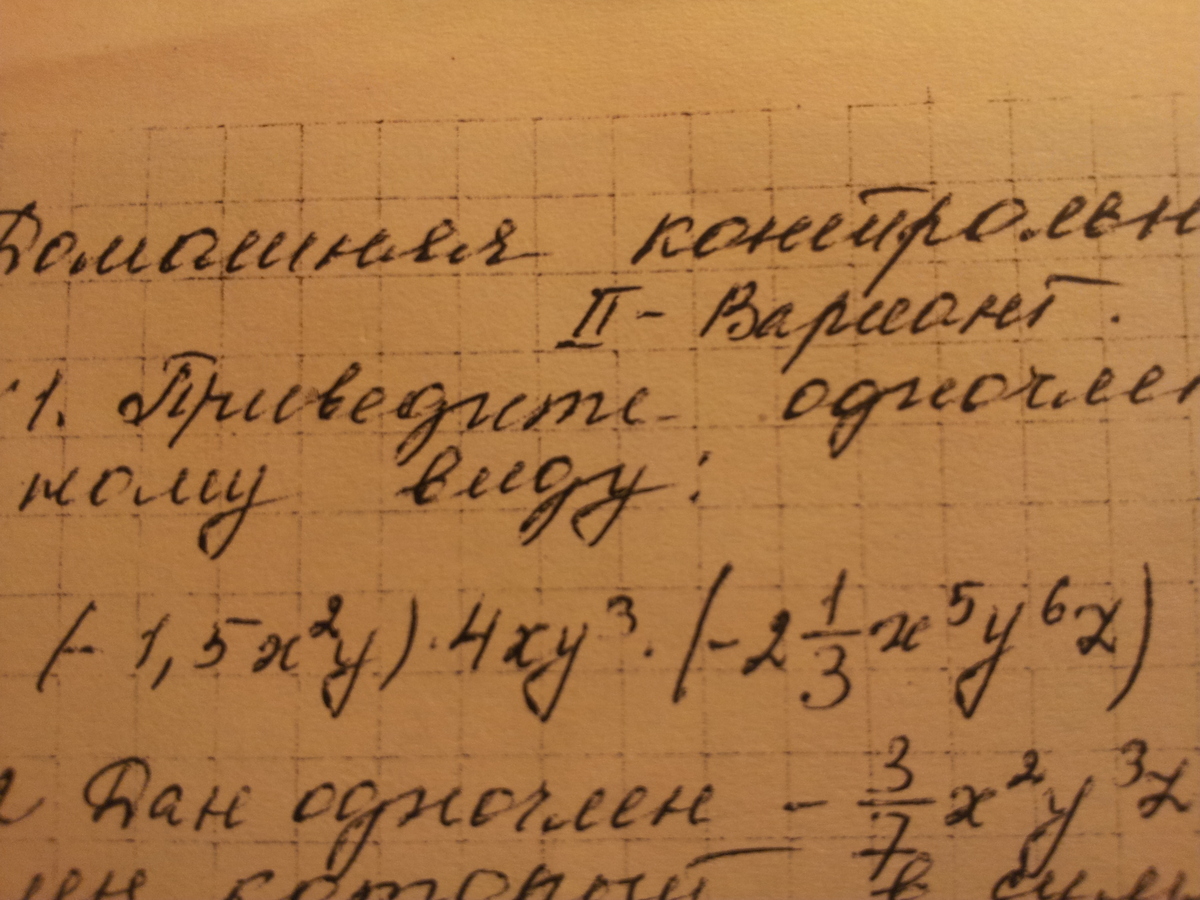 Домашняя контрольн
II - Вариант.
1. Приведите одночлен
ному виду:
(- 1,5x²y) · 4xy³ · (-2 1/3 x⁵y⁶z)
Дан одночлен - 3/7 x²y³z
который в сум